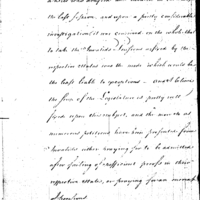 the last session, and upon a pretty considerable
investigation it was conceived on the whole that
to take the Invalids Pensions as fixed by the
respective States was the mode which would be
the least liable to exceptions — and I believe
the sense of the Legislature is pretty well
fixed upon this subject, and the more so as
numerous petitions have been presented from
Invalids either praying for to be admitted
after failing of sufficient proofs in their
respective States, or praying for an increase
of pensions